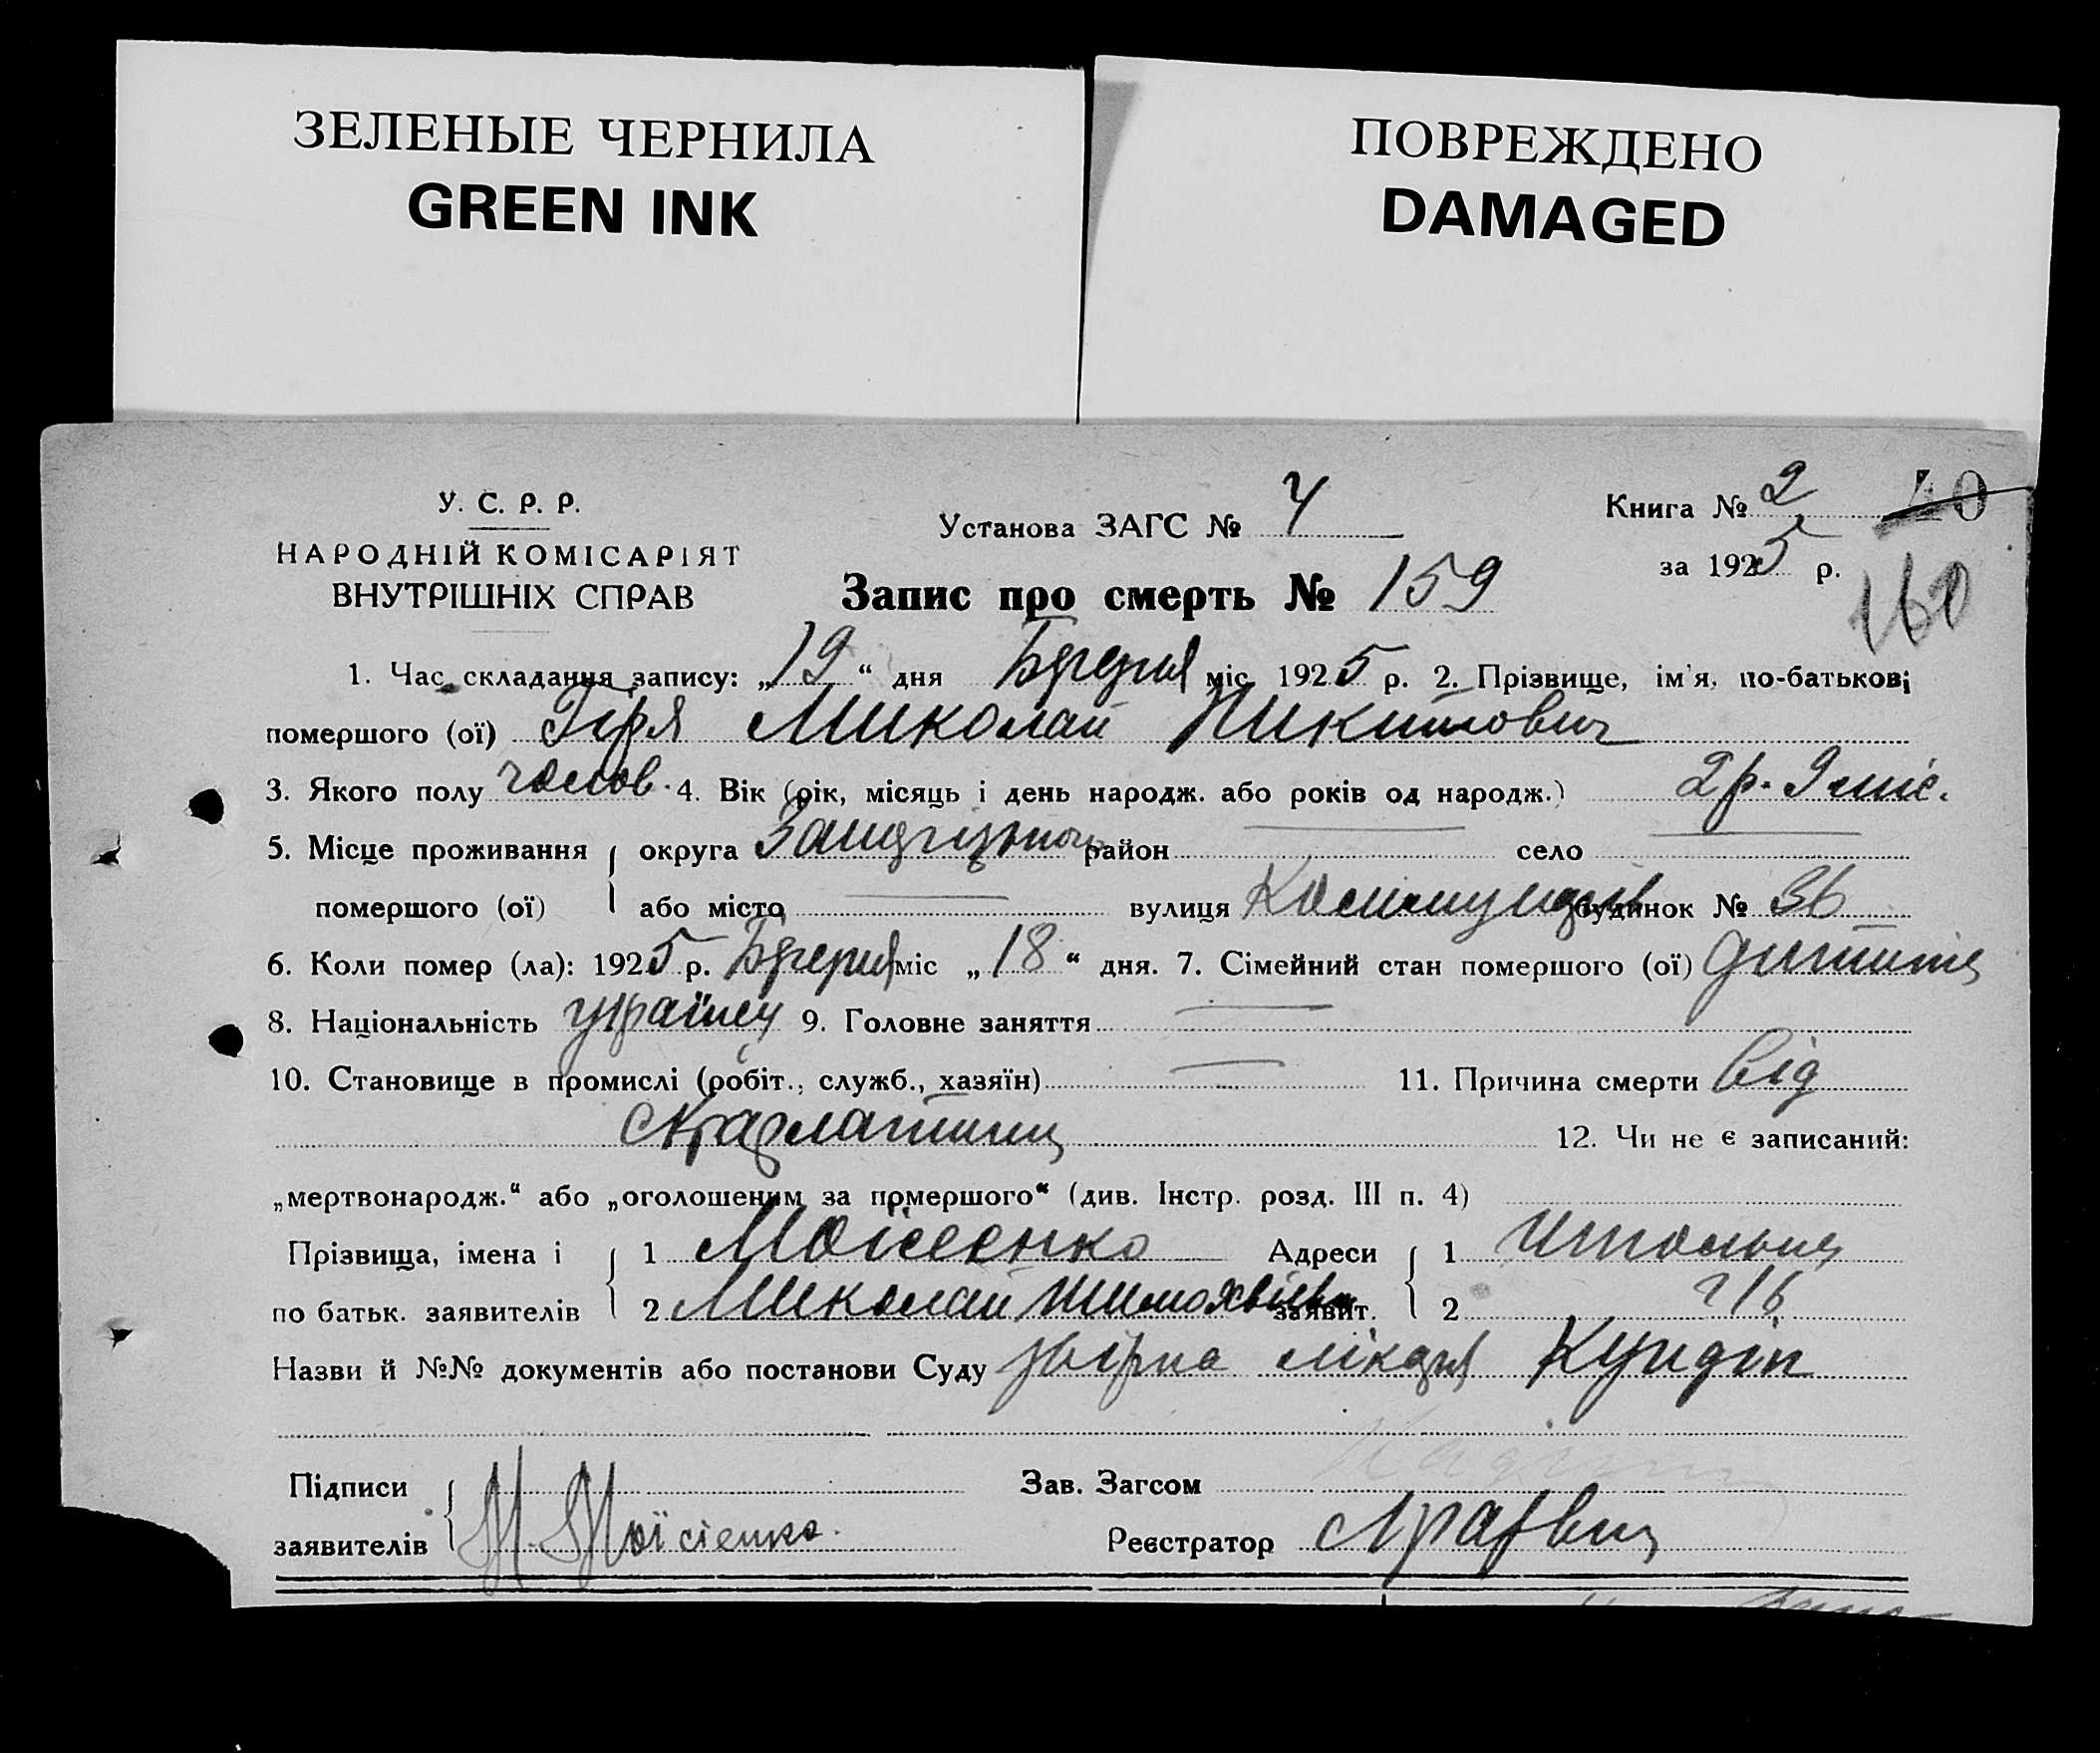 ЗЕЛЕНЫЕ ЧЕРНИЛА
GREEN INK
ПОВРЕЖДЕНО
DAMAGED
У. С. Р. Р.
НАРОДНІЙ КОМІСАРІЯТ
ВНУТРІШНІХ СПРАВ
Установа ЗАГС № 4
Запис про смерть № 159
Книга № 2
40
за 1925 р.
160
1. Час складання запису: „19“ дня Березня міс. 1925 р. 2. Прізвище, ім'я, по-батькові
помершого (ої) Миколай Никитович
3. Якого полу чолов. 4. Вік (рік, місяць і день народж. або років од народж.) 2 р. 9 міс.
5. Місце проживання округа район село
помершого (ої) або місто вулиця будинок № 36
6. Коли помер (ла): 1925 р. Березня міс „18“ дня. 7. Сімейний стан помершого (ої) дитина
8. Національність українец 9. Головне заняття
10. Становище в промислі (робіт., служб., хазяїн) 11. Причина смерти від
скарлатини 12. Чи не є записаний:
„мертвонародж.“ або „оголошеним за помершого“ (див. Інстр. розд. III п. 4)
Прізвища, імена і 1 Моісеенко Адреси 1
по батьк. заявителів 2 Миколай заявит. 2
Назви й №№ документів або постанови Суду лікаря
Підписи Зав. Загсом
заявителів М. Моїсієнко. Реєстратор